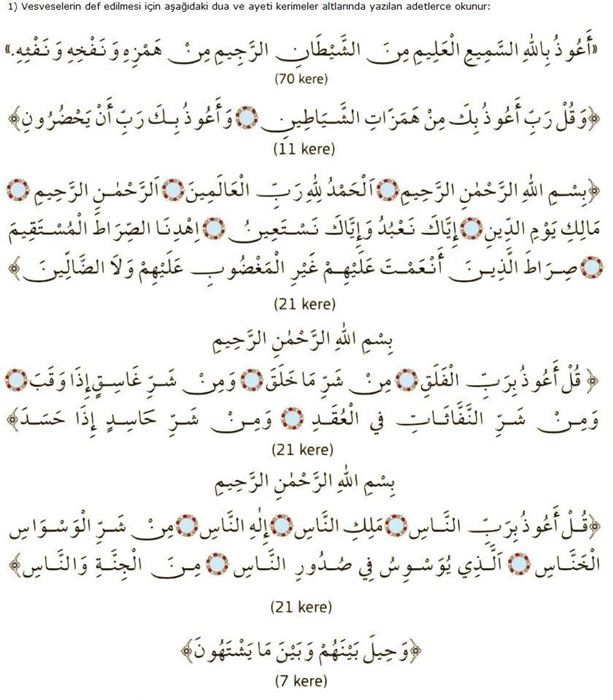 1) Vesveselerin def edilmesi için aşağıdaki dua ve ayeti kerimeler altlarında yazılan adetlerce okunur:
«أَعُوذُ بِاللهِ السَّمِيعِ الْعَلِيمِ مِنَ الشَّيْطَانِ الرَّجِيمِ مِنْ هَمْزِهِ وَنَفْخِهِ وَنَفْثِهِ.»
(70 kere)
﴿وَقُلْ رَبِّ أَعُوذُ بِكَ مِنْ هَمَزَاتِ الشَّيَاطِينِ وَأَعُوذُ بِكَ رَبِّ أَنْ يَحْضُرُونِ﴾
(11 kere)
﴿بِسْمِ اللهِ الرَّحْمٰنِ الرَّحِيمِ اَلْحَمْدُ لِلّٰهِ رَبِّ الْعَالَمِينَ اَلرَّحْمٰنِ الرَّحِيمِ
مَالِكِ يَوْمِ الدِّينِ إِيَّاكَ نَعْبُدُ وَإِيَّاكَ نَسْتَعِينُ اِهْدِنَا الصِّرَاطَ الْمُسْتَقِيمَ
صِرَاطَ الَّذِينَ أَنْعَمْتَ عَلَيْهِمْ غَيْرِ الْمَغْضُوبِ عَلَيْهِمْ وَلَا الضَّالِّينَ﴾
(21 kere)
بِسْمِ اللهِ الرَّحْمٰنِ الرَّحِيمِ
﴿قُلْ أَعُوذُ بِرَبِّ الْفَلَقِ مِنْ شَرِّ مَا خَلَقَ وَمِنْ شَرِّ غَاسِقٍ إِذَا وَقَبَ
وَمِنْ شَرِّ النَّفَّاثَاتِ فِي الْعُقَدِ وَمِنْ شَرِّ حَاسِدٍ إِذَا حَسَدَ﴾
(21 kere)
بِسْمِ اللهِ الرَّحْمٰنِ الرَّحِيمِ
﴿قُلْ أَعُوذُ بِرَبِّ النَّاسِ مَلِكِ النَّاسِ إِلٰهِ النَّاسِ مِنْ شَرِّ الْوَسْوَاسِ
الْخَنَّاسِ اَلَّذِي يُوَسْوِسُ فِي صُدُورِ النَّاسِ مِنَ الْجِنَّةِ وَالنَّاسِ﴾
(21 kere)
﴿وَحِيلَ بَيْنَهُمْ وَبَيْنَ مَا يَشْتَهُونَ﴾
(7 kere)